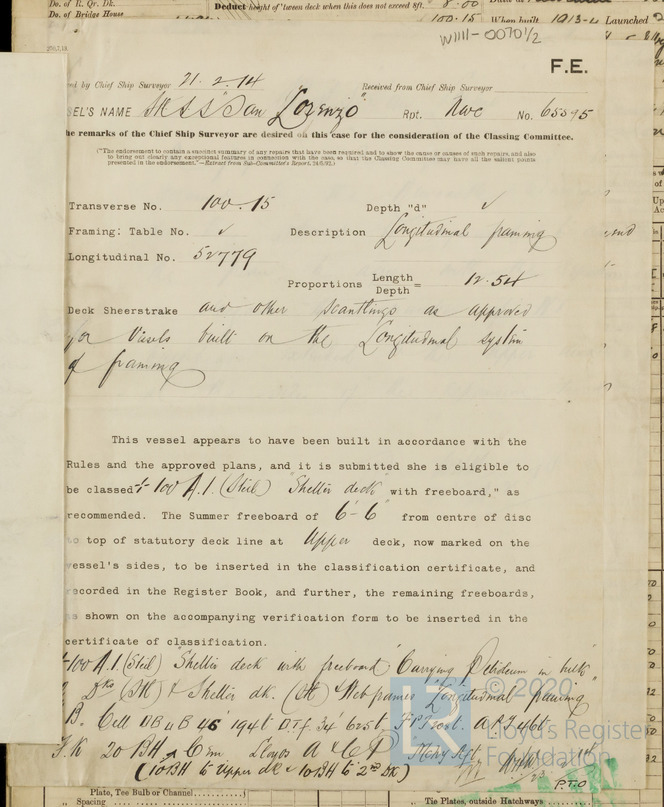 Do. of R. Qr. Dk.
Do. of Bridge House
Deduct height of 'tween deck when this does not exceed 8ft. 8.00
100.15
When built 1913-4 Launched
W1111-0070 1/2
F.E.
ed by Chief Ship Surveyor 21.2.14 Received from Chief Ship Surveyor
SEL'S NAME "San Lorenzo" Rpt. Nwc No. 65595
he remarks of the Chief Ship Surveyor are desired on this case for the consideration of the Classing Committee.
("The endorsement to contain a succinct summary of any repairs that have been required and to show the cause or causes of such repairs, and also
to bring out clearly any exceptional features in connection with the case, so that the Classing Committee may have all the salient points
presented in the endorsement."—Extract from Sub-Committee's Report,
Transverse No. 100.15 Depth "d" ✓
Framing: Table No. ✓ Description Longitudinal framing
Longitudinal No. 52779
Proportions Length
Depth = 12.54
Deck Sheerstrake and other scantlings as approved
for Vessels built on the Longitudinal system
of framing
This vessel appears to have been built in accordance with the
Rules and the approved plans, and it is submitted she is eligible to
be classed + 100 A.1. (Steel) "Shelter deck with freeboard," as
recommended. The Summer freeboard of 6'-6" from centre of disc
to top of statutory deck line at Upper deck, now marked on the
vessel's sides, to be inserted in the classification certificate, and
recorded in the Register Book, and further, the remaining freeboards,
as shown on the accompanying verification form to be inserted in the
certificate of classification.
+100 A.1 (Steel) Shelter deck with freeboard "Carrying Petroleum in bulk"
2 Dks (Stl) & Shelter dk. (Stl) Web frames Longitudinal framing
B. Cell DB u B 46' 194t D.T.f. 34' 625t F.P.T. A.P.T. 46t
F.K 20 BH Cem Lloyds A & C P Mchy Aft
(10 BH to Upper dk & 10 BH to 2nd DK)
P.T.O
© 2020
Lloyd's Register
Foundation
Plate, Tee Bulb or Channel
Spacing
Tie Plates, outside Hatchways